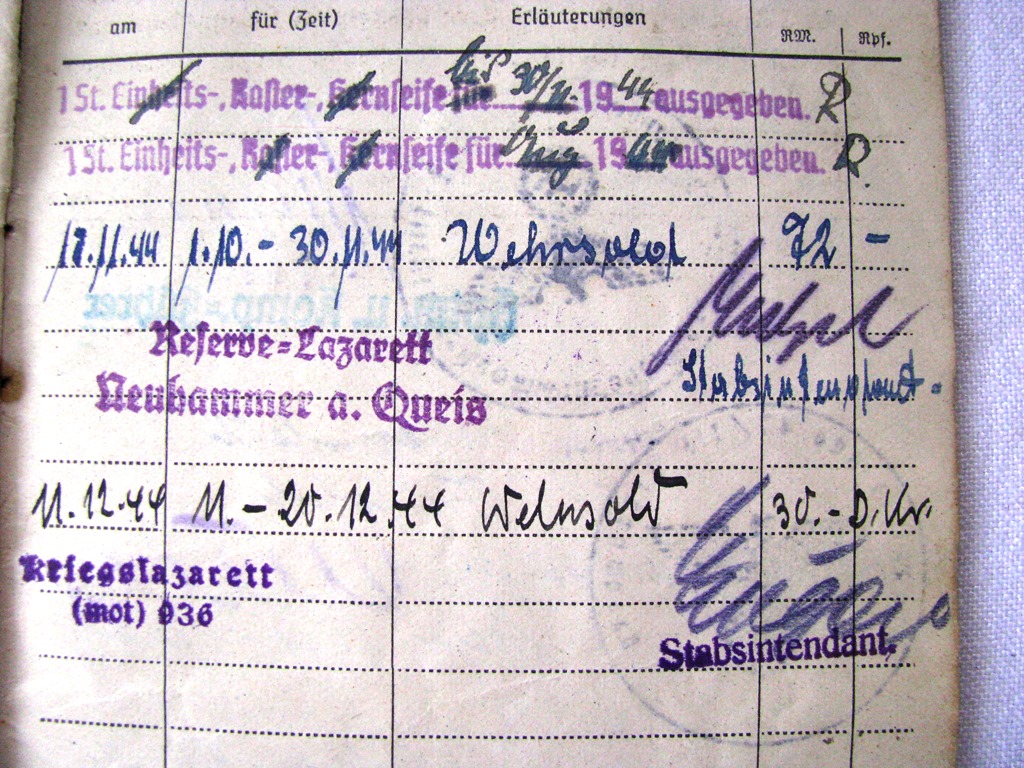 am für (Zeit) Erläuterungen RM. Rpf.
1 St. Einheits-, Rasier-, Kernseife für bis 30/11. 1944 ausgegeben. R
1 St. Einheits-, Rasier-, Kernseife für Aug 1944 ausgegeben. R.
17.11.44 1.10.- 30.11.44 Wehrsold 72 -
Reserve-Lazarett
Stabsintendant.
Neuhammer a. Queis
11.12.44 11. - 20.12.44 Wehrsold 30.- D.Kr.
Kriegslazarett
(mot) 936
Stabsintendant.